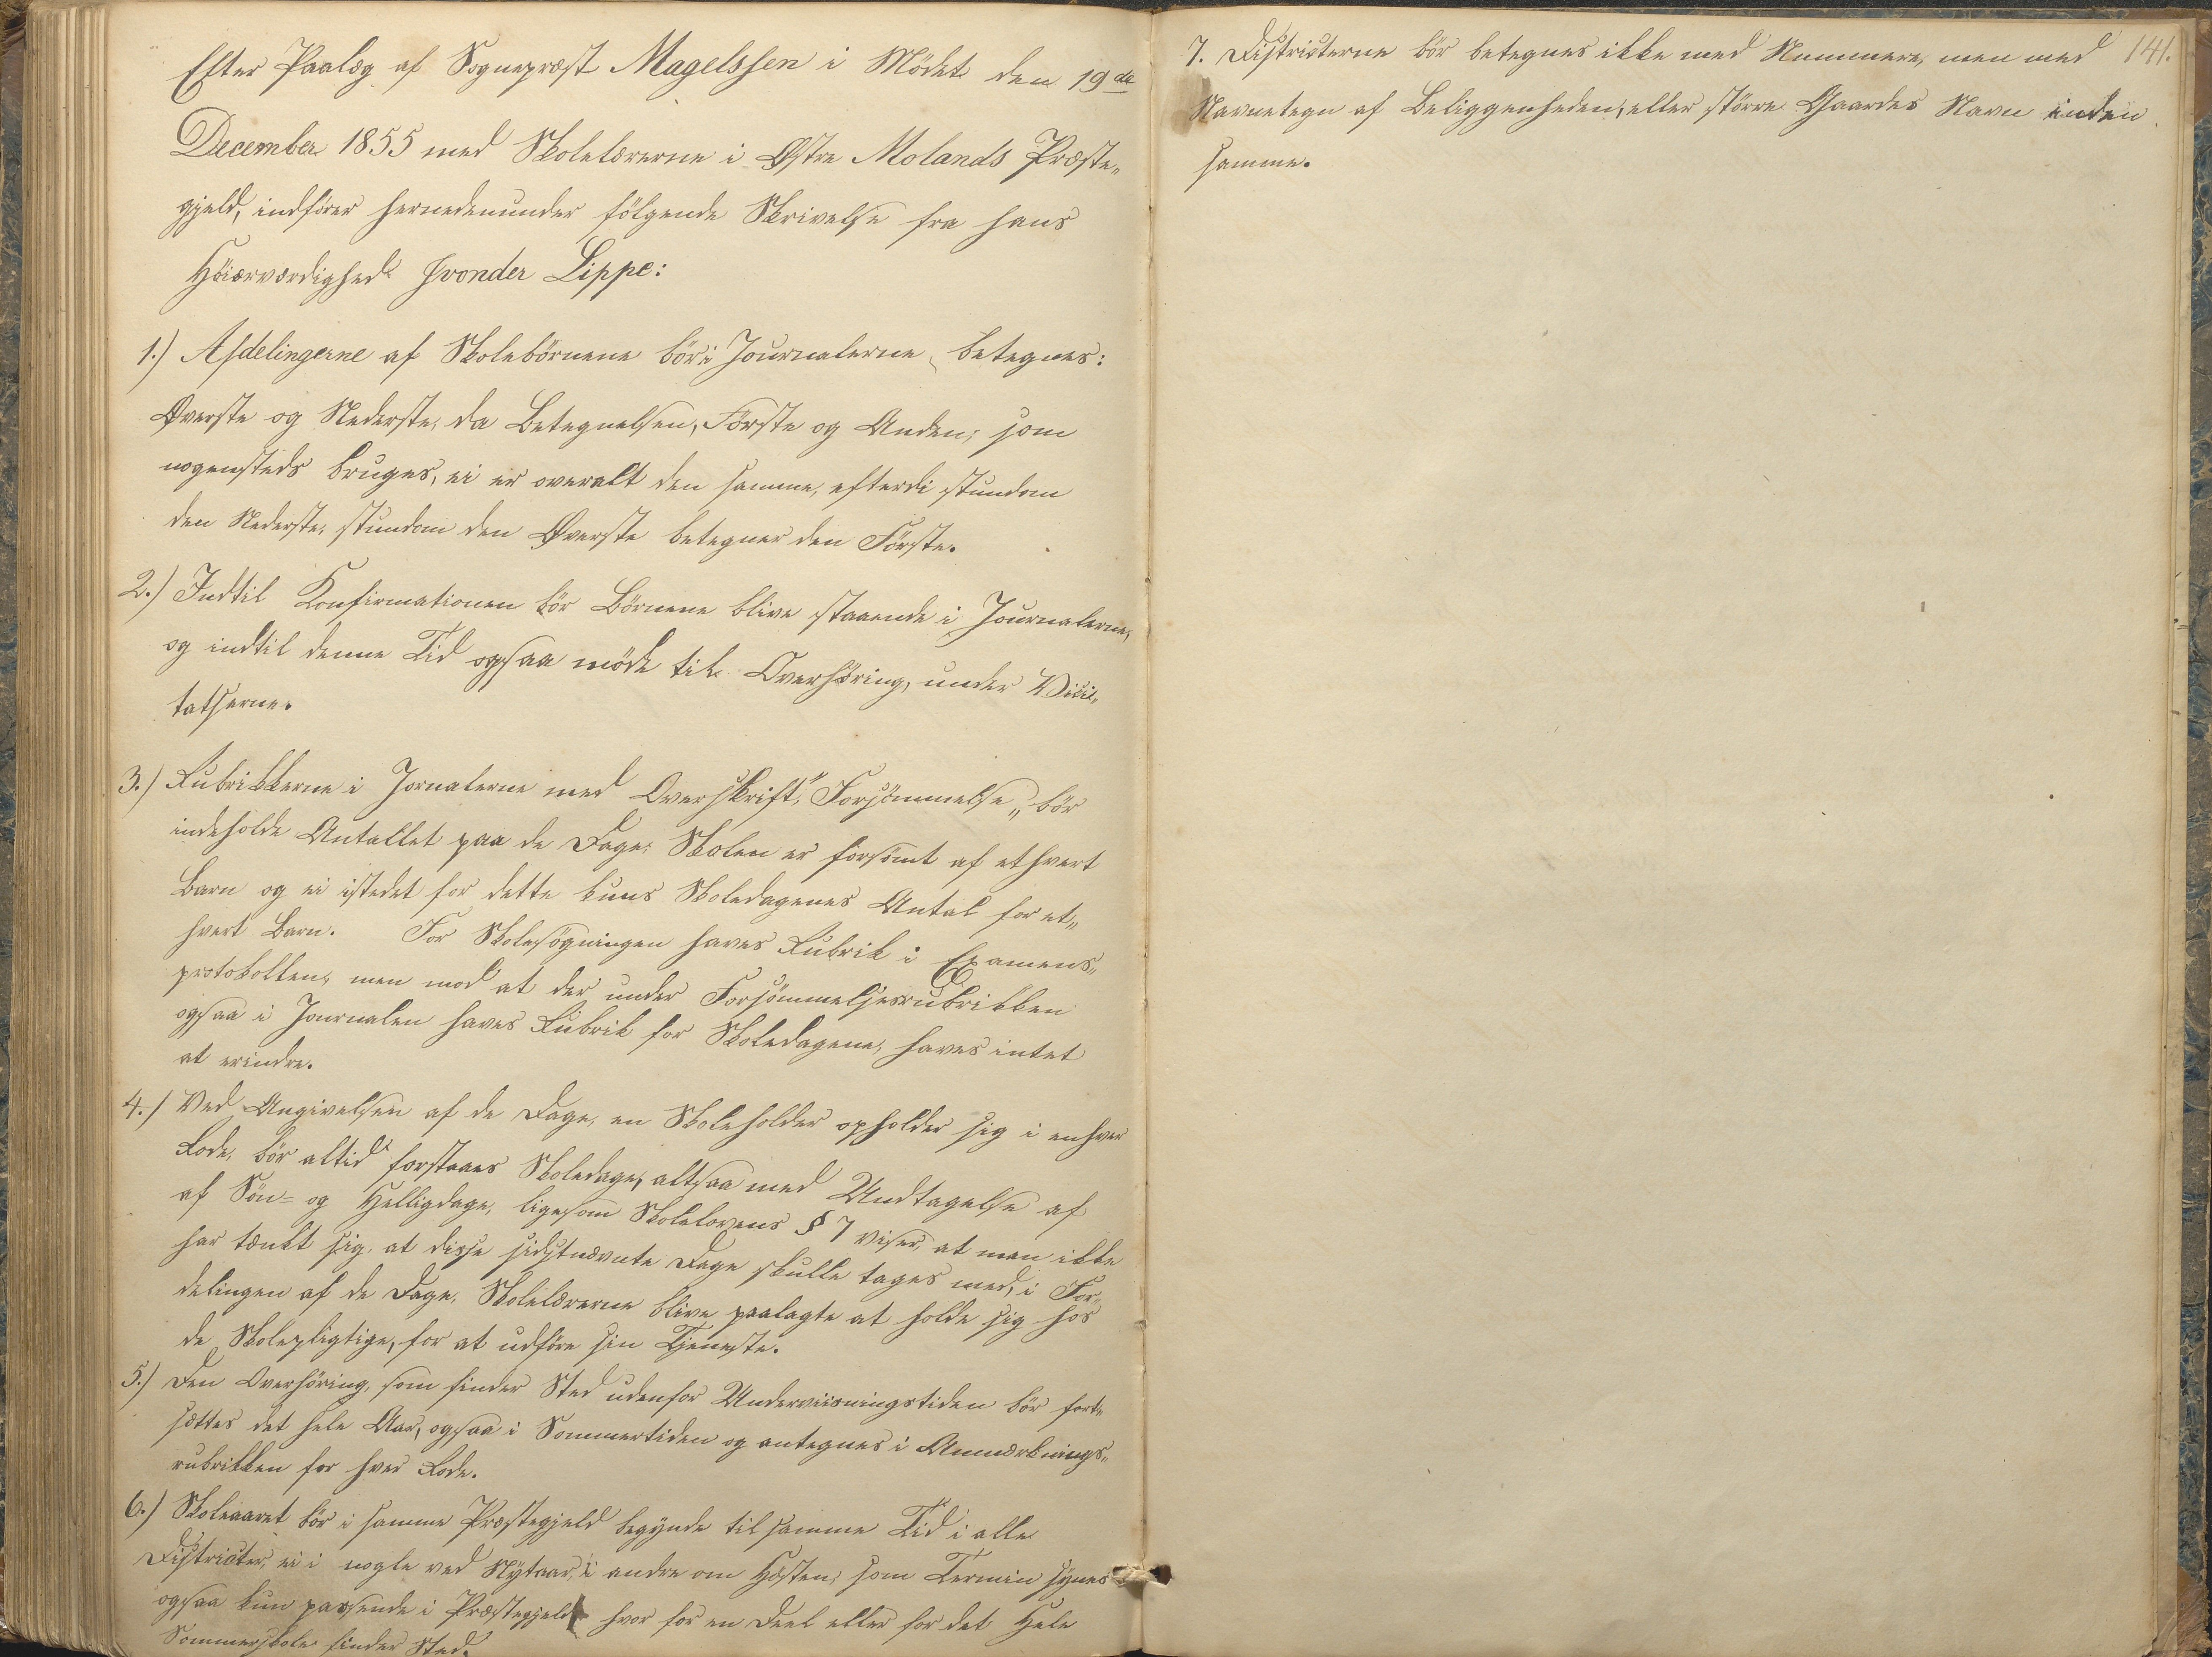 Efter Paalæg af Sognepræst Magelssen i Mödet den 19de
December 1855 med Skolelærerne i Østre Molands Præste„
gjeld, indförer hernedenunder fölgende Skrivelse fra hans
Höiærværdighed Jvonder Lippe:
1.) Afdelingerne af Skolebörnene bör i Journalerne betegnes:
Øverste og Nederste, da Betegnelsen, Förste og Anden, som
nogensteds bruges, ei er overalt den samme, efterdi stundom
den Nederste, stundom den Øverste betegner den Förste.
2.) Indtil Konfirmationen bör Börnene blive staaende i Journalerne,
og indtil denne Tid ogsaa möde til Overhöring, under Visi„
tatserne.
3.) Rubrikkerne i Jornalerne med Overskrift, "Forsömmelse„ bör
indeholde Antallet paa de Dage, Skolen er forsömt af ethvert
Barn og ei istedet for dette kuns Skoledagenes Antal for et„
hvert Barn. For Skolesögningen haves Rubrik i Examens„
protokollen, men mod at der under Forsömmelsesrubrikken
ogsaa i Journalen haves Rubrik for Skoledagene, haves intet
at erindre.
4.) Ved Angivelsen af de Dage, en Skoleholder opholder sig i enhver
Rode, bör altid forstaaes Skoledage, altsaa med Undtagelse af
af Sön- og Helligdage, ligesom Skolelovens § 7 viser, at man ikke
har tænkt sig, at disse sidstnævnte Dage skulle tages med, i For„
delingen af de Dage, Skolelærerne blive paalagte at holde sig hos
de Skolepligtige, for at udföre sin Tjeneste.
5.) Den Overhöring, som finder Sted udenfor Underviisningstiden bör fort„
sættes det hele Aar, ogsaa i Sommertiden og antegnes i Anmærknings„
rubrikken for hver Rode.
6.) Skoleaaret bör i samme Præstegjeld begynde til samme Tid i alle
Districter, ei i nogle ved Nytaar, i andre om Hösten, som Termin synes
ogsaa kun passende i Præstegjeld hvor for en Deel eller for det Hele
Sommerskole finder Sted.
7. Districterne bör betegnes ikke med Nummere, men med
141.
Navnetegn af Beliggenheden, eller större Gaardes Navn inden
samme.